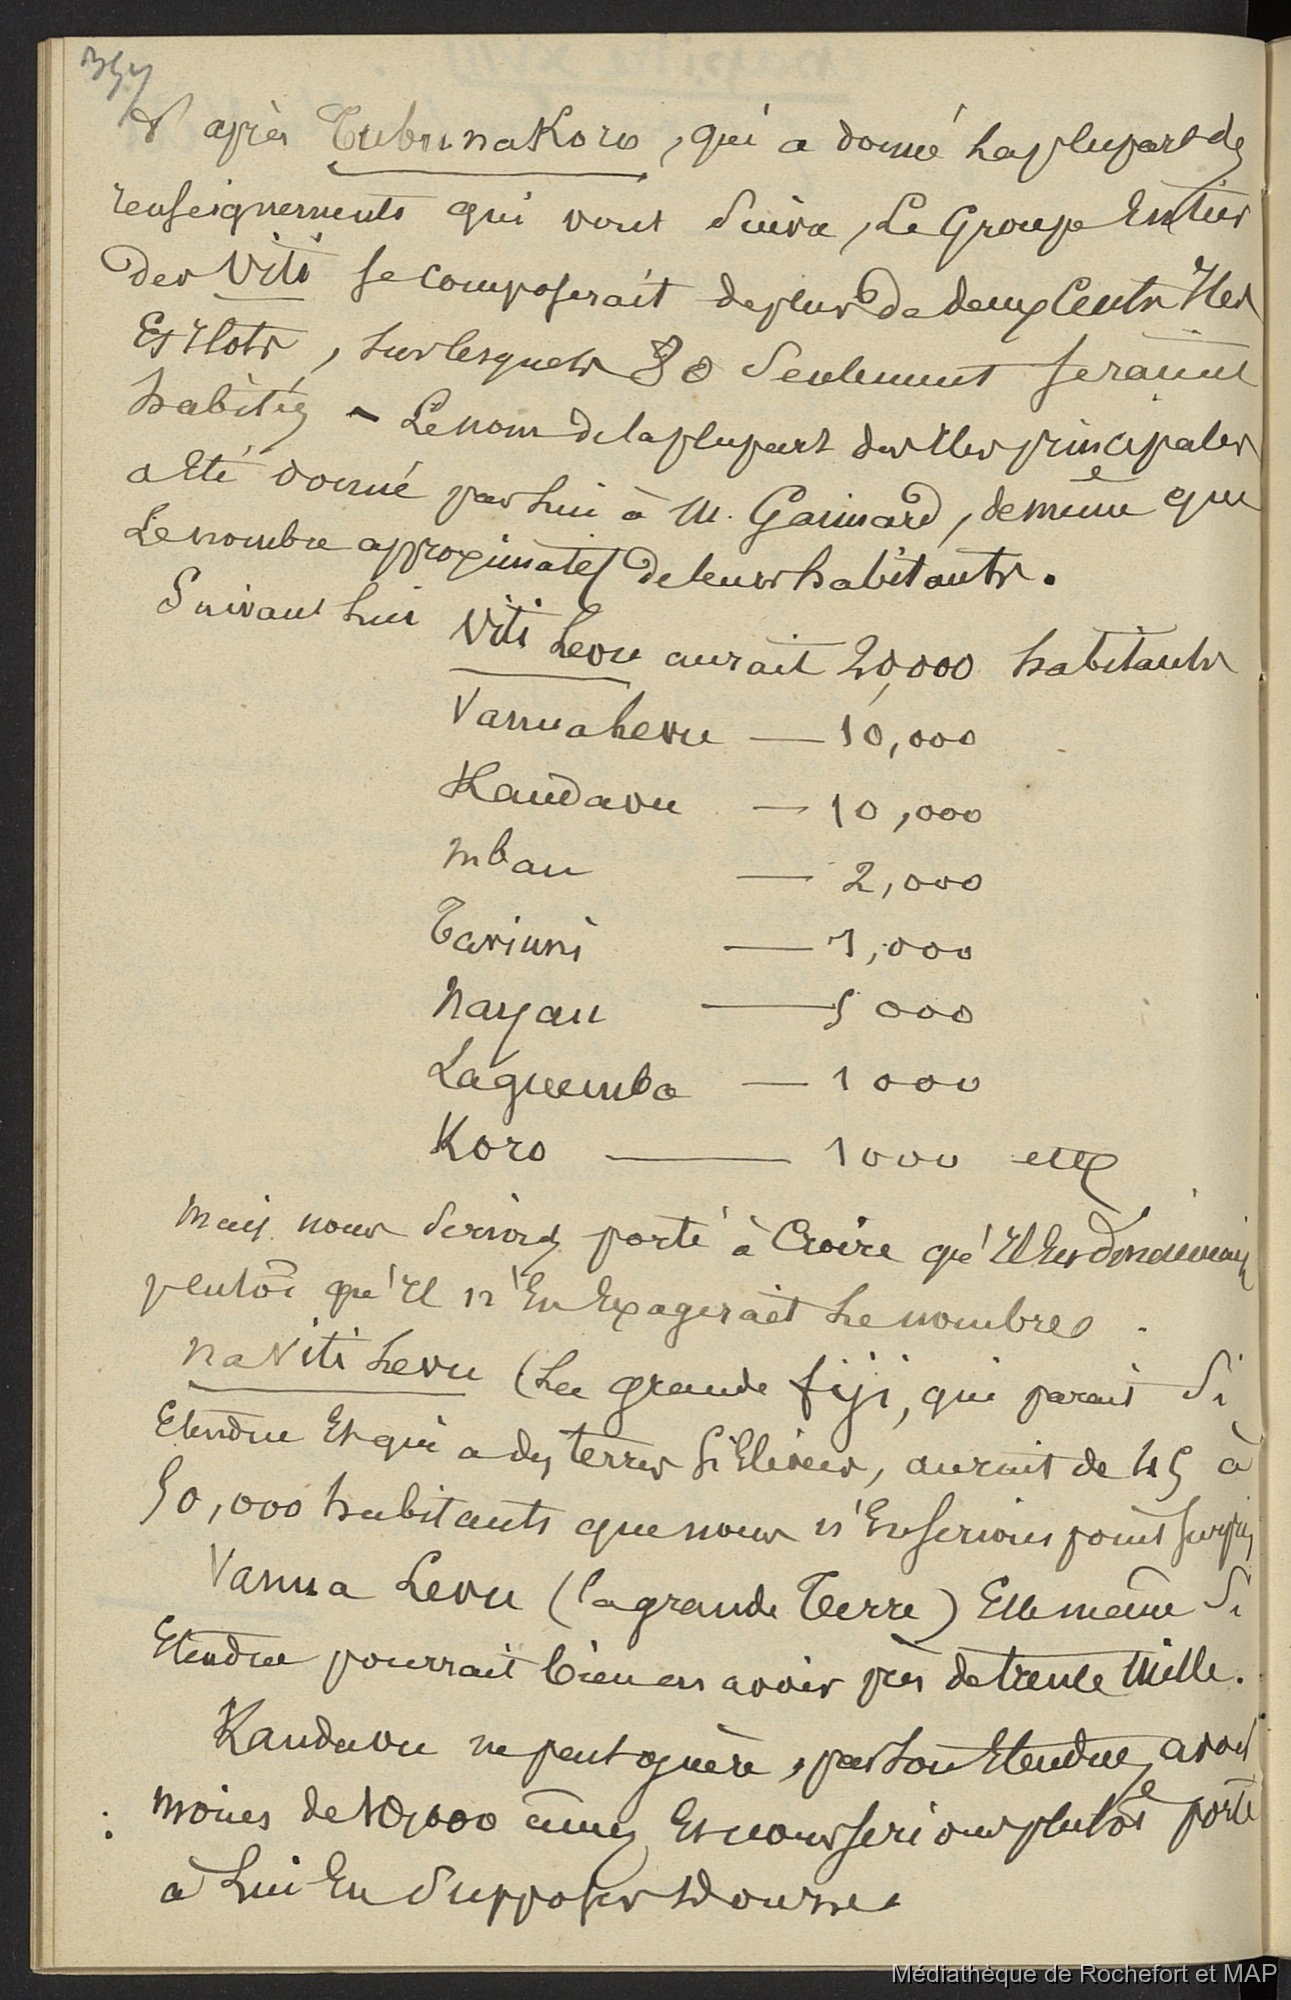 D'après TubunaKoro, qui a donné la plupart des
renseignements qui vont Suivre, Le Groupe Entier
des Viti se composerait de plus de deux Cents Iles
Et Ilots, sur lesquels 30 Seulement seraient
habités - Le nom de la plupart des Iles principales
a Eté donné par Lui à M. Gaimard, de même que
Le nombre approximatif de leurs habitants.
Suivant Lui Viti Levu aurait 20,000 habitants
Vanua Levu — 10,000
Kandavu — 10,000
mbau — 2,000
Taviuni — 1,000
Nayau — 5 000
Laguemba — 1 000
Koro — 1 000 etc
Mais nous serions porté à Croire qu'Il En
plutôt qu'Il n'En Exagerait Le nombre.
na Viti Levu (La grande fiji, qui parait Si
Etendue Et qui a des terres Si Elevées, aurait de 45 à
50,000 habitants que nous n'En serions point surpris
Vanua Levu (la grande Terre) Elle même Si
Etendue pourrait bien en avoir près de trente Mille.
Kandavu ne peut guère, par son Etendue, avoir
moins de 10,000 âmes Et nous serions plutôt porté
à Lui En Supposer Douze
Médiathèque de Rochefort et MAP